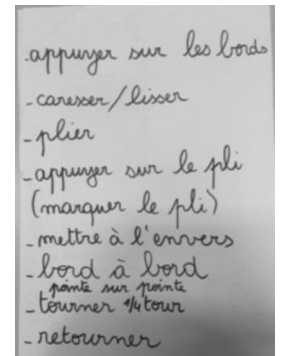 .appuyer sur les bords
- caresser/lisser
- plier
- appuyer sur le pli
(marquer le pli)
- mettre à l'envers
- bord à bord
pointe sur pointe
- tourner 1/4 tour
- retourner